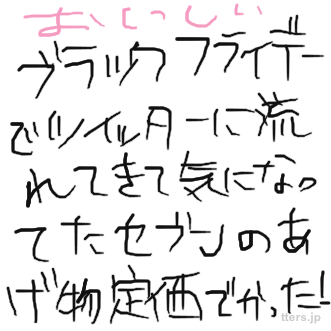 おいっしい
ブラックフライデー
でツイッターに流
れてきて気になっ
てたセブンのあ
げ物定価でかった!
tters.jp